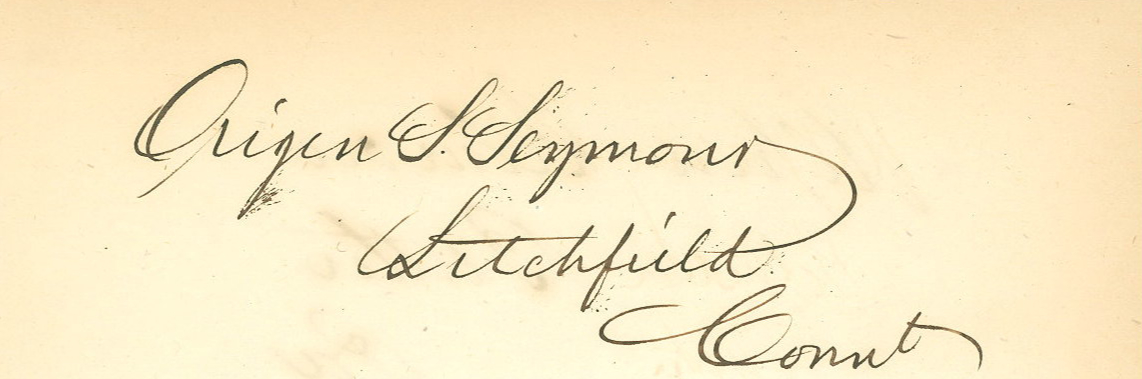 Origen S. Seymour
Litchfield
Connt